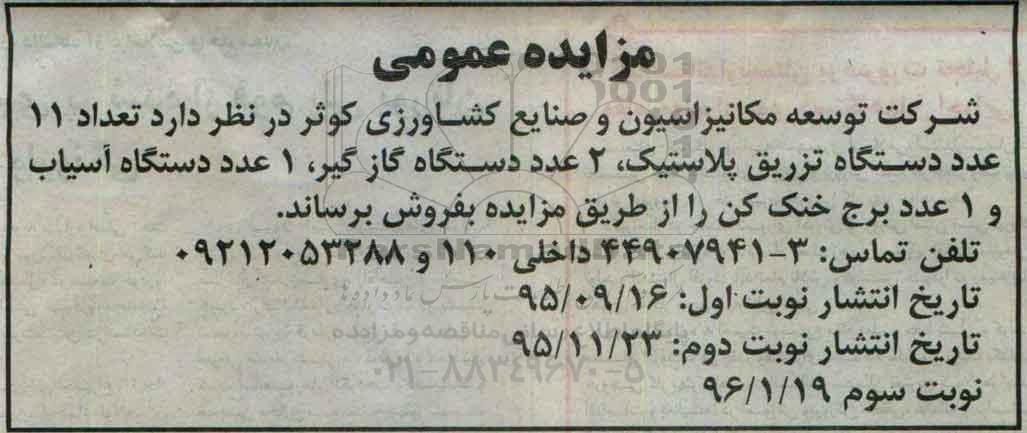 مزایده عمومی
شرکت توسعه مکانیزاسیون و صنایع کشاورزی کوثر در نظر دارد تعداد ۱۱
عدد دستگاه تزریق پلاستیک، ۲ عدد دستگاه گاز گیر، ۱ عدد دستگاه آسیاب
و ۱ عدد برج خنک کن را از طریق مزایده بفروش برساند.
تلفن تماس: ۳-۴۴۹۰۷۹۴۱ داخلی ۱۱۰ و ۰۹۲۱۲۰۵۳۲۸۸
تاریخ انتشار نوبت اول: ۹۵/۰۹/۱۶
تاریخ انتشار نوبت دوم: ۹۵/۱۱/۲۳
۰۲۱-۸۸۳۴۹۶۷۰-۵
نوبت سوم ۹۶/۱/۱۹